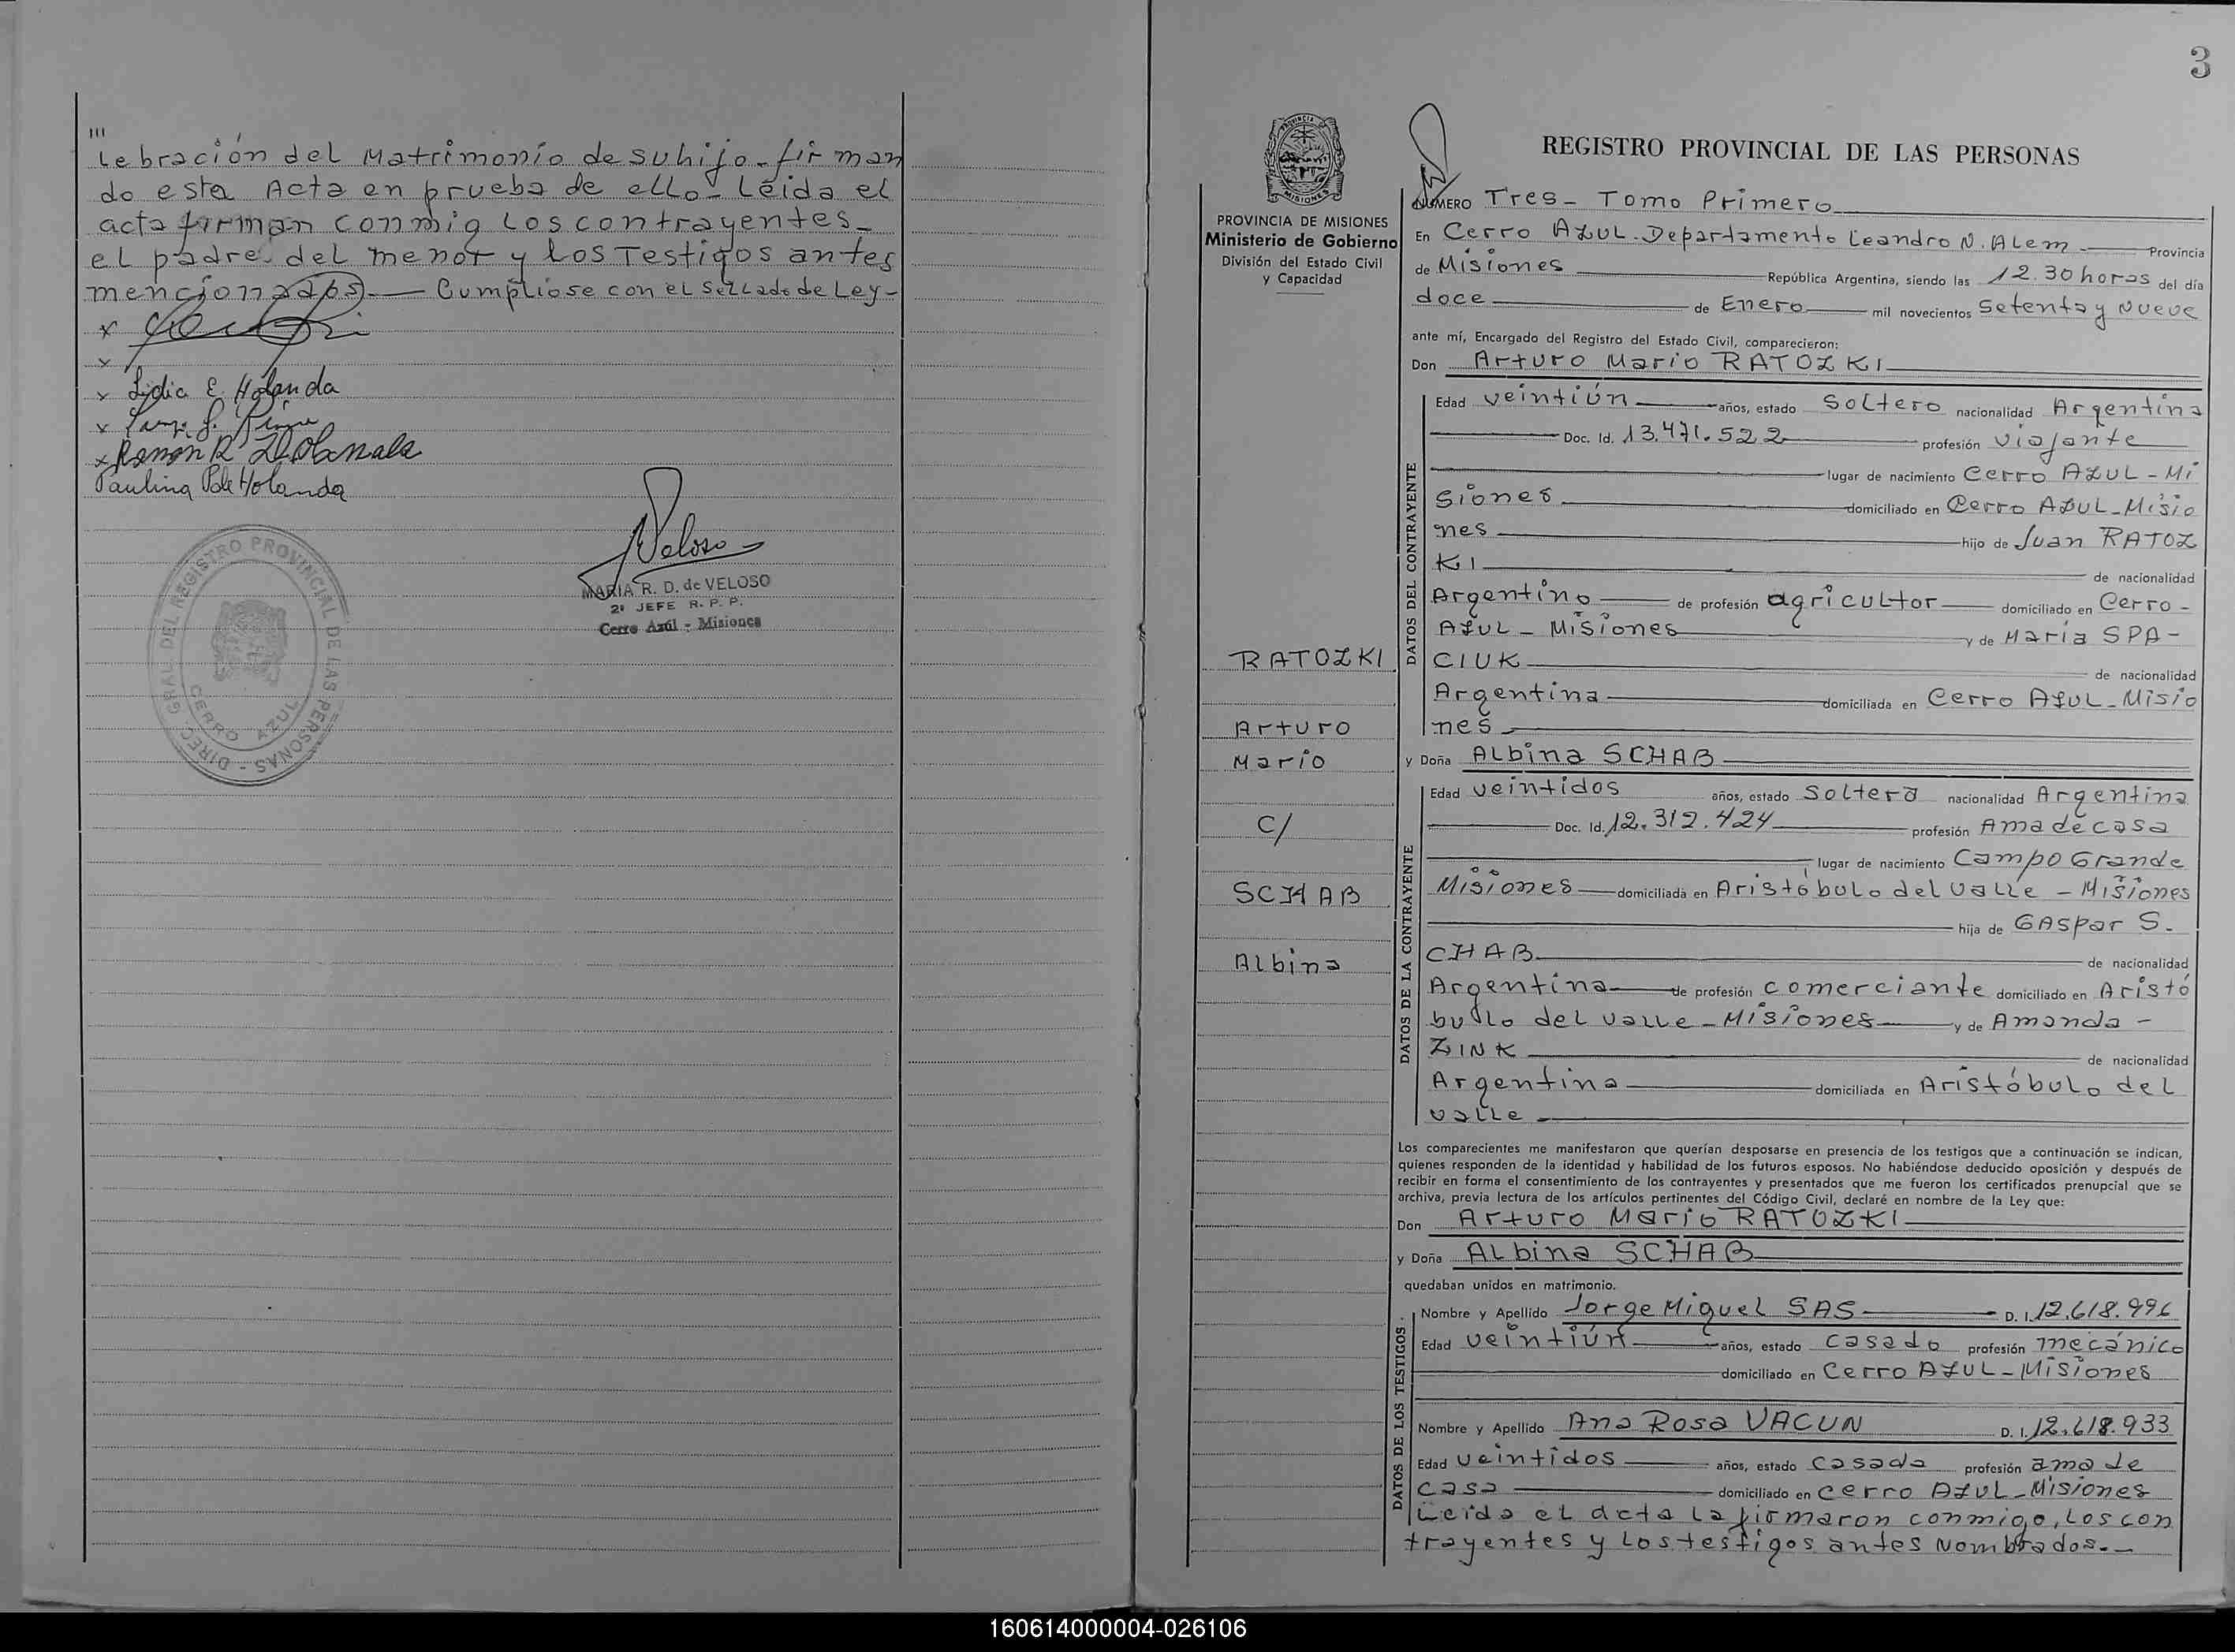 lebración del Matrimonio de su hijo - firman
do esta Acta en prueba de ello - Leída el
acta firman conmig los contrayentes -
el padre del menor y los Testigos antes
mencionados. — Cumpliose con el sellado de Ley -
x
x
x Lidia E. Holanda
x
x Ramon R
Paulina P de Holanda
Veloso
MARIA R. D. de VELOSO
2º JEFE R. P. P.
Cerro Azúl - Misiones
DIREC. GRAL. DEL REGISTRO PROVINCIAL DE LAS PERSONAS -
CERRO AZUL
3
PROVINCIA DE MISIONES
Ministerio de Gobierno
División del Estado Civil
y Capacidad
RATOZKI
Arturo
Mario
C/
SCHAB
Albina
REGISTRO PROVINCIAL DE LAS PERSONAS
NUMERO Tres - Tomo Primero
En Cerro AZUL - Departamento Leandro N. ALem - Provincia
de Misiones República Argentina, siendo las 12.30 horas del día
doce de Enero mil novecientos Setenta y Nueve
ante mí, Encargado del Registro del Estado Civil, comparecieron:
Don Arturo Mario RATOZKI
DATOS DEL CONTRAYENTE
Edad veintiún años, estado Soltero nacionalidad Argentina
Doc. Id. 13.471.522 profesión viajante
lugar de nacimiento Cerro AZUL - Mi
siones domiciliado en Cerro AZUL - Misio
nes hijo de Juan RATOZ
KI de nacionalidad
Argentino de profesión agricultor domiciliado en Cerro -
AZUL - Misiones y de María SPA -
CIUK de nacionalidad
Argentina domiciliada en Cerro AZUL - Misio
nes
y Doña ALbina SCHAB
DATOS DE LA CONTRAYENTE
Edad veintidos años, estado Soltera nacionalidad Argentina
Doc. Id. 12.312.424 profesión Ama de casa
lugar de nacimiento Campo Grande
Misiones domiciliada en Aristóbulo del Valle - Misiones
hija de GAspar S.
CHAB de nacionalidad
Argentina de profesión comerciante domiciliado en Aristó
bullo del valle - Misiones y de Amanda -
ZINK de nacionalidad
Argentina domiciliada en Aristóbulo del
valle
Los comparecientes me manifestaron que querían desposarse en presencia de los testigos que a continuación se indican,
quienes responden de la identidad y habilidad de los futuros esposos. No habiéndose deducido oposición y después de
recibir en forma el consentimiento de los contrayentes y presentados que me fueron los certificados prenupcial que se
archiva, previa lectura de los artículos pertinentes del Código Civil, declaré en nombre de la Ley que:
Don Arturo Mario RATOZKI
y Doña ALbina SCHAB
quedaban unidos en matrimonio.
DATOS DE LOS TESTIGOS.
Nombre y Apellido Jorge Miguel SAS D. I. 12.618.996
Edad veintiún años, estado casado profesión mecánico
domiciliado en Cerro AZUL - Misiones
Nombre y Apellido Ana Rosa VACUN D. I. 12.618.933
Edad veintidos años, estado casada profesión ama de
casa domiciliado en cerro AZUL - Misiones
Leida el acta la firmaron conmigo, los con
trayentes y los testigos antes Nombrados. -
160614000004-026106